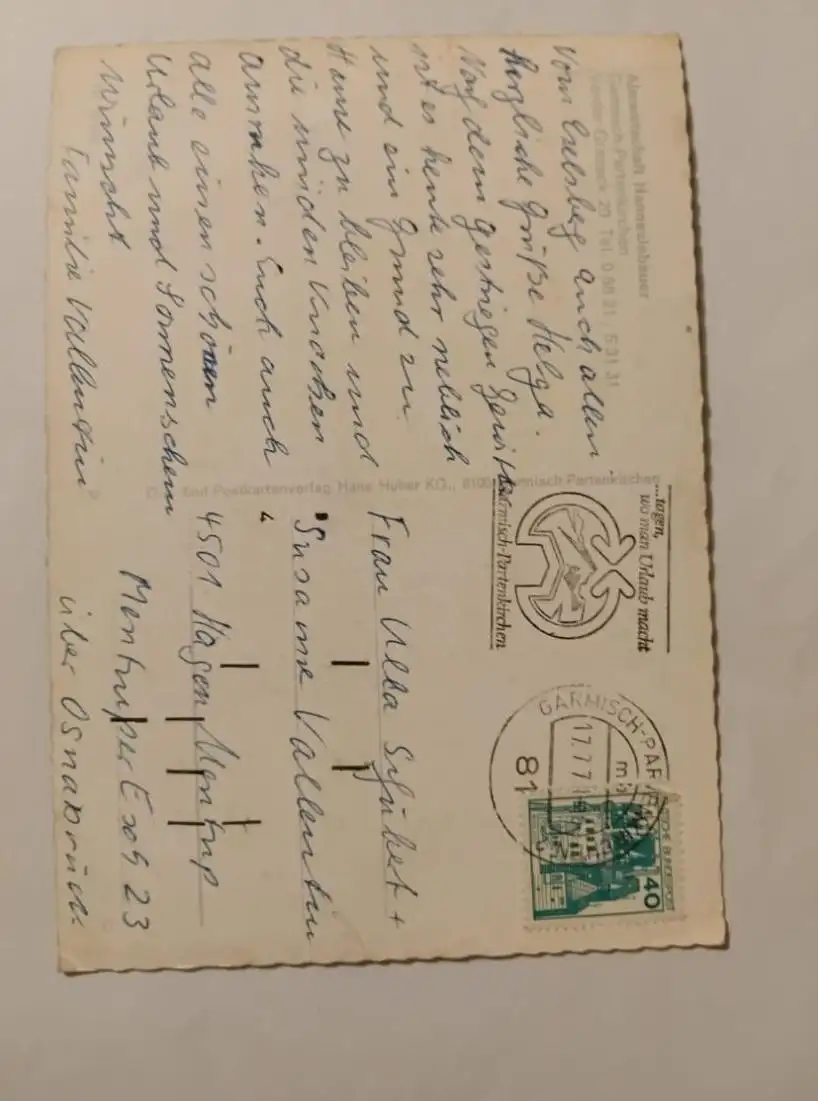 Almwirtschaft Hanneslabauer
Garmisch-Partenkirchen
20 Tel. 0 88 21 - 5 31 31
Vom auch allen
herzliche Grüße Helga.
Nach dem gestriegen Gewitter
ist es heute sehr neblich
und ein Grund zu
Hause zu bleiben und
die müden Knochen
ausruhen. Euch auch
alle einen schönen
Urlaub und Sonnenschein
wünscht
Familie Vallentin
und Postkartenverlag Hans Huber KG., 8100 Garmisch Partenkirchen
...tagen,
wo man Urlaub macht
Garmisch-Partenkirchen
GARMISCH-PARTENKIRCHEN
17.77
81
DEUTSCHE BUNDESPOST
40
Frau Ulla +
Susanne Vallentin
4501 Hagen Mentrup
Mentruper Esch 23
über Osnabrück